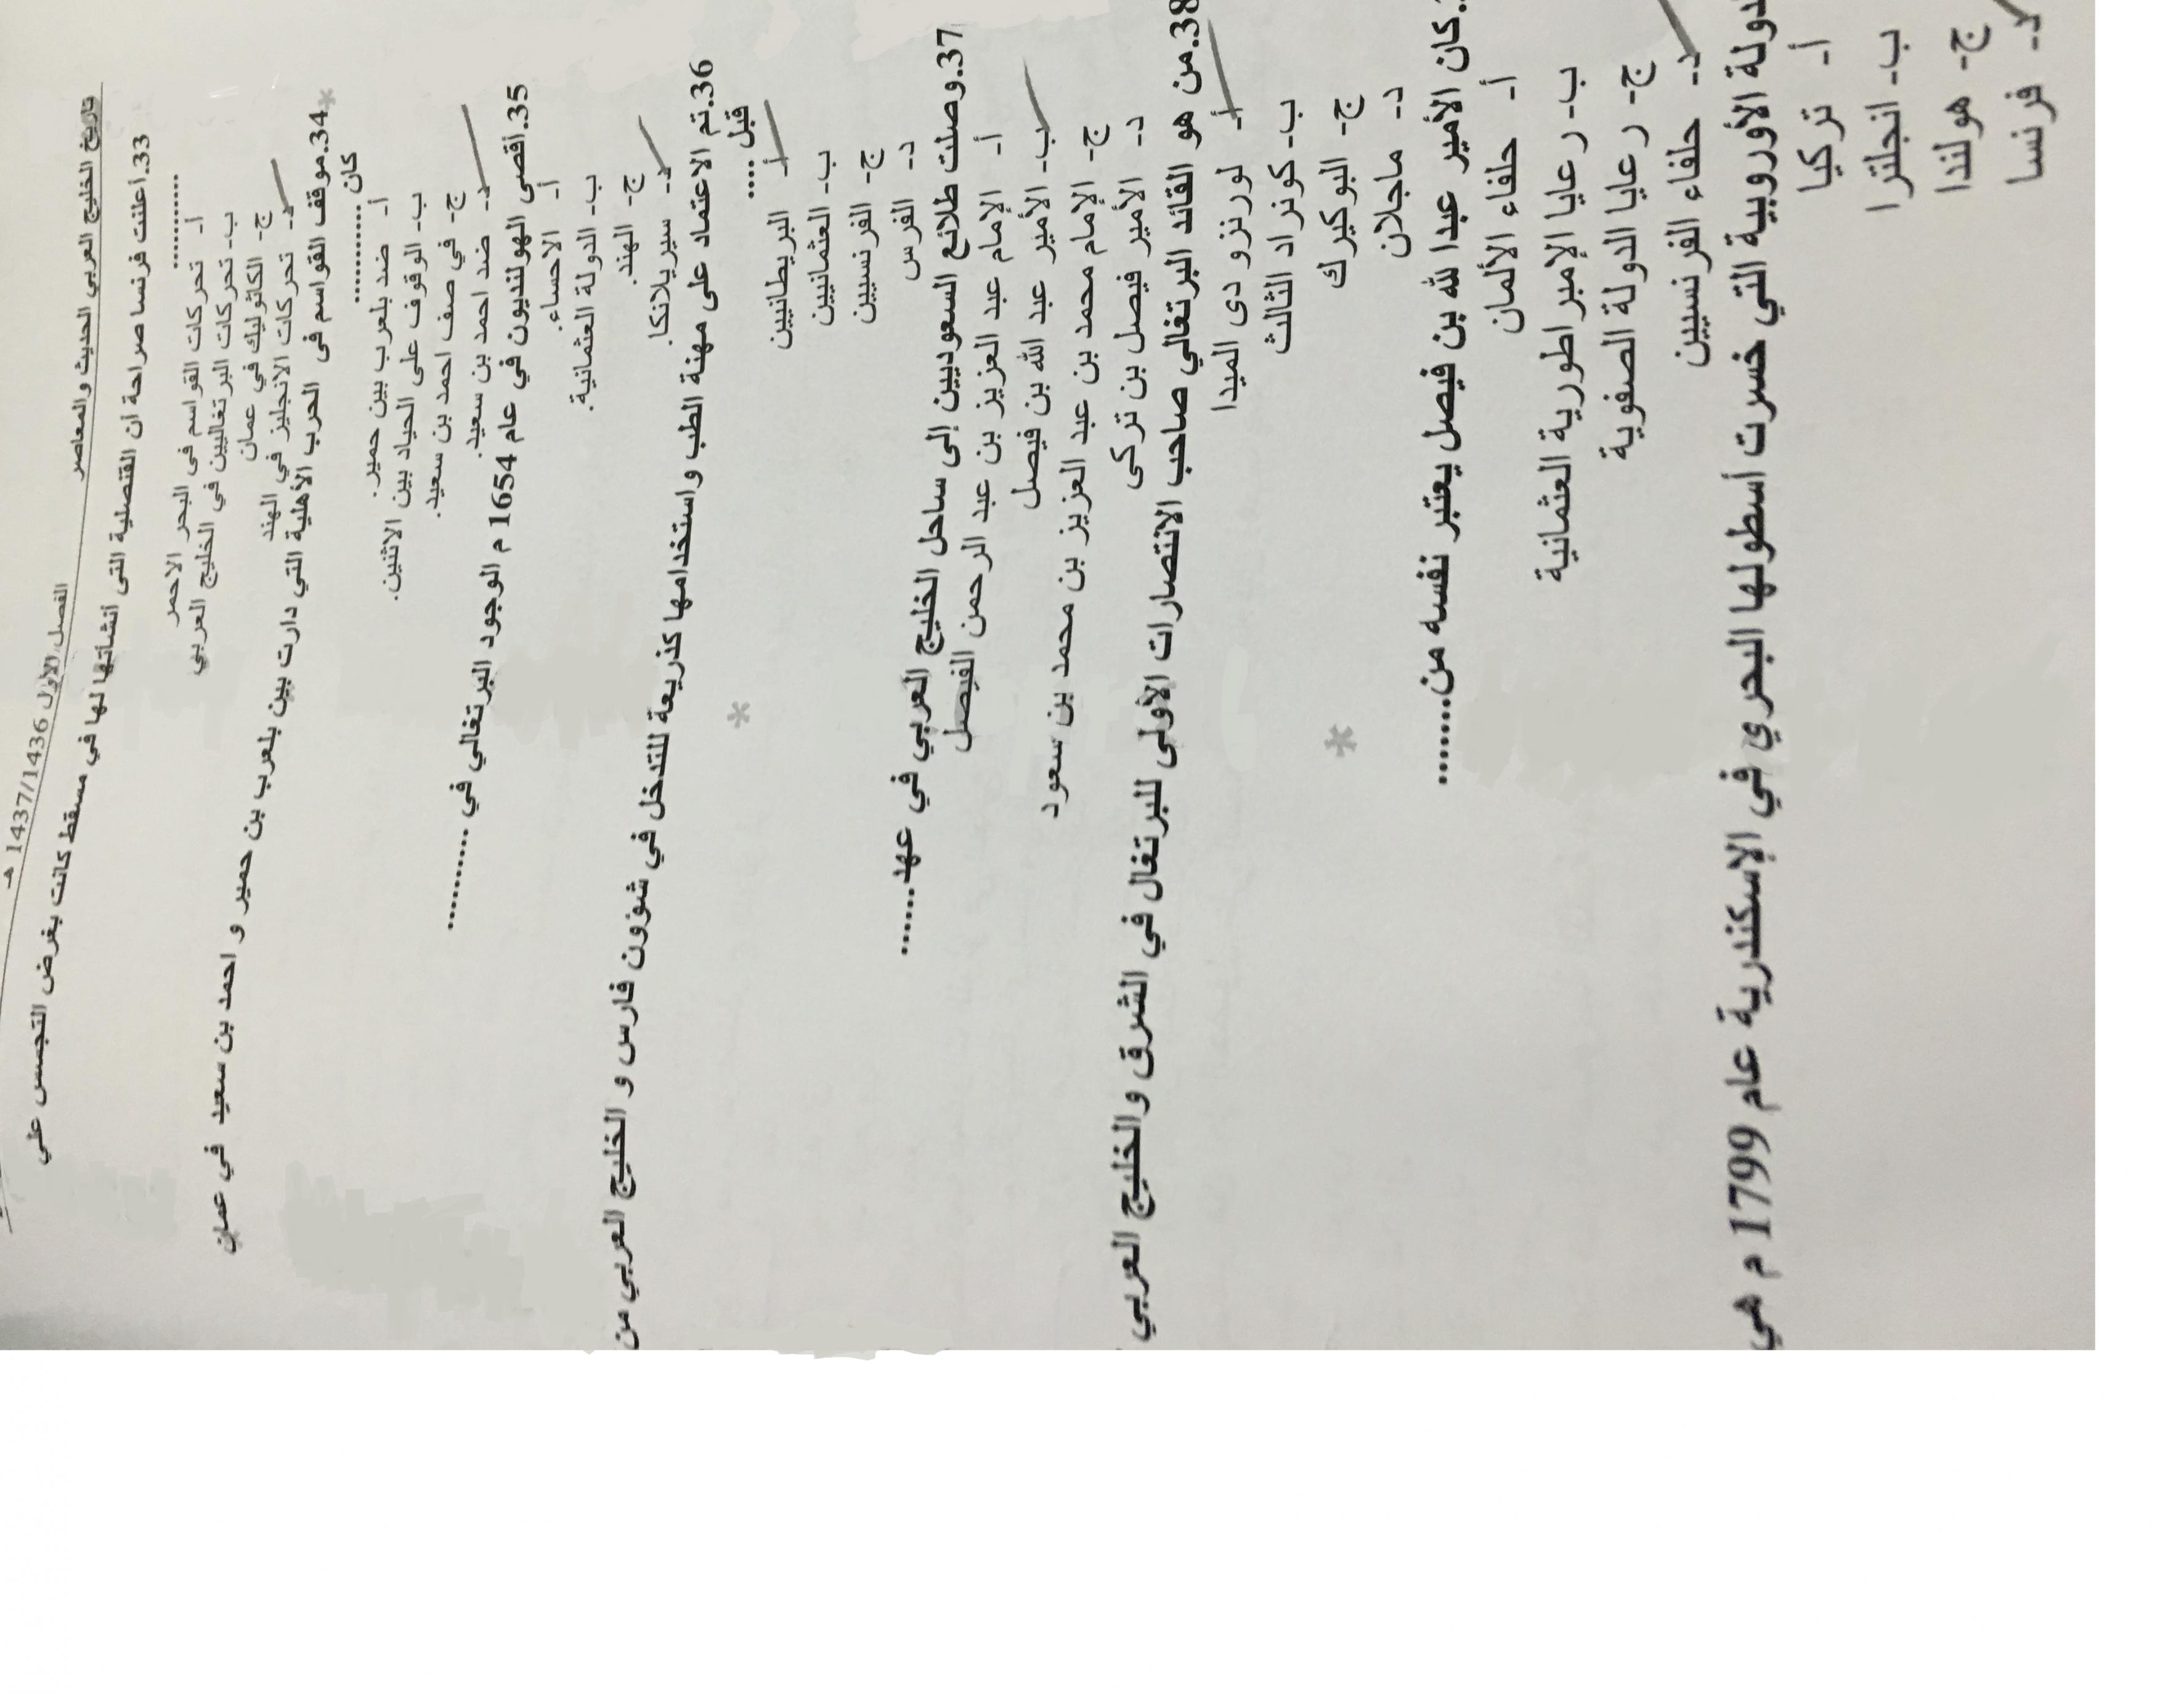 تاريخ الخليج العربي الحديث والمعاصر
الفصل الأول 1437/1436 هـ
33.اعلنت فرنسا صراحة ان القنصلية التى انشاتها لها في مسقط كانت بغرض التجسس على
...........
أ- تحركات القواسم فى البحر الاحمر
ب- تحركات البرتغاليين في الخليج العربي
ج- الكاثوليك في عمان
د- تحركات الانجليز في الهند
34.موقف القواسم فى الحرب الأهلية التي دارت بين بلعرب بن حمير و احمد بن سعيد في عمان
كان ...........
أ- ضد بلعرب بين حمير.
ب- الوقوف على الحياد بين الاثنين.
ج- في صف احمد بن سعيد.
د- ضد احمد بن سعيد.
35.أقصى الهولنديون في عام 1654 م الوجود البرتغالي في ..........
أ- الاحساء.
ب- الدولة العثمانية.
ج- الهند.
د- سيريلانكا.
36.تم الاعتماد على مهنة الطب واستخدامها كذريعة للتدخل في شؤون فارس و الخليج العربي من
قبل .....
أ- البريطانيين
ب- العثمانيين
ج- الفرنسيين
د- الفرس
37.وصلت طلائع السعوديين إلى ساحل الخليج العربي في عهد.......
أ- الإمام عبد العزيز بن عبد الرحمن الفيصل
ب- الأمير عبد الله بن فيصل
ج- الإمام محمد بن عبد العزيز بن محمد بن سعود
د- الأمير فيصل بن تركى
38.من هو القائد البرتغالي صاحب الانتصارات الأولى للبرتغال في الشرق والخليج العربي
أ- لورنزو دى الميدا
ب- كونراد الثالث
ج- البوكيرك
د- ماجلان
كان الأمير عبدا لله بن فيصل يعتبر نفسه من........
أ- حلفاء الألمان
ب- رعايا الإمبراطورية العثمانية
ج- رعايا الدولة الصفوية
د- حلفاء الفرنسيين
الأوروبية التي خسرت أسطولها البحري في الإسكندرية عام 1799 م هي
أ- تركيا
ب- انجلترا
ج- هولندا
د- فرنسا